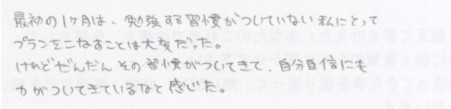 最初の1ヶ月は、勉強する習慣がついていない私にとって
プランをこなすことは大変だった。
けれどだんだんその習慣がついてきて、自分自信にも
力がついてきているなと感じた。